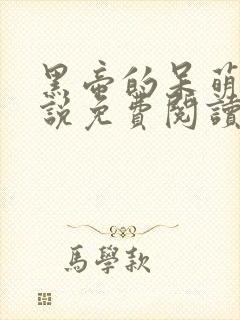 黑帝的呆萌
說免費閱讀
馬學款